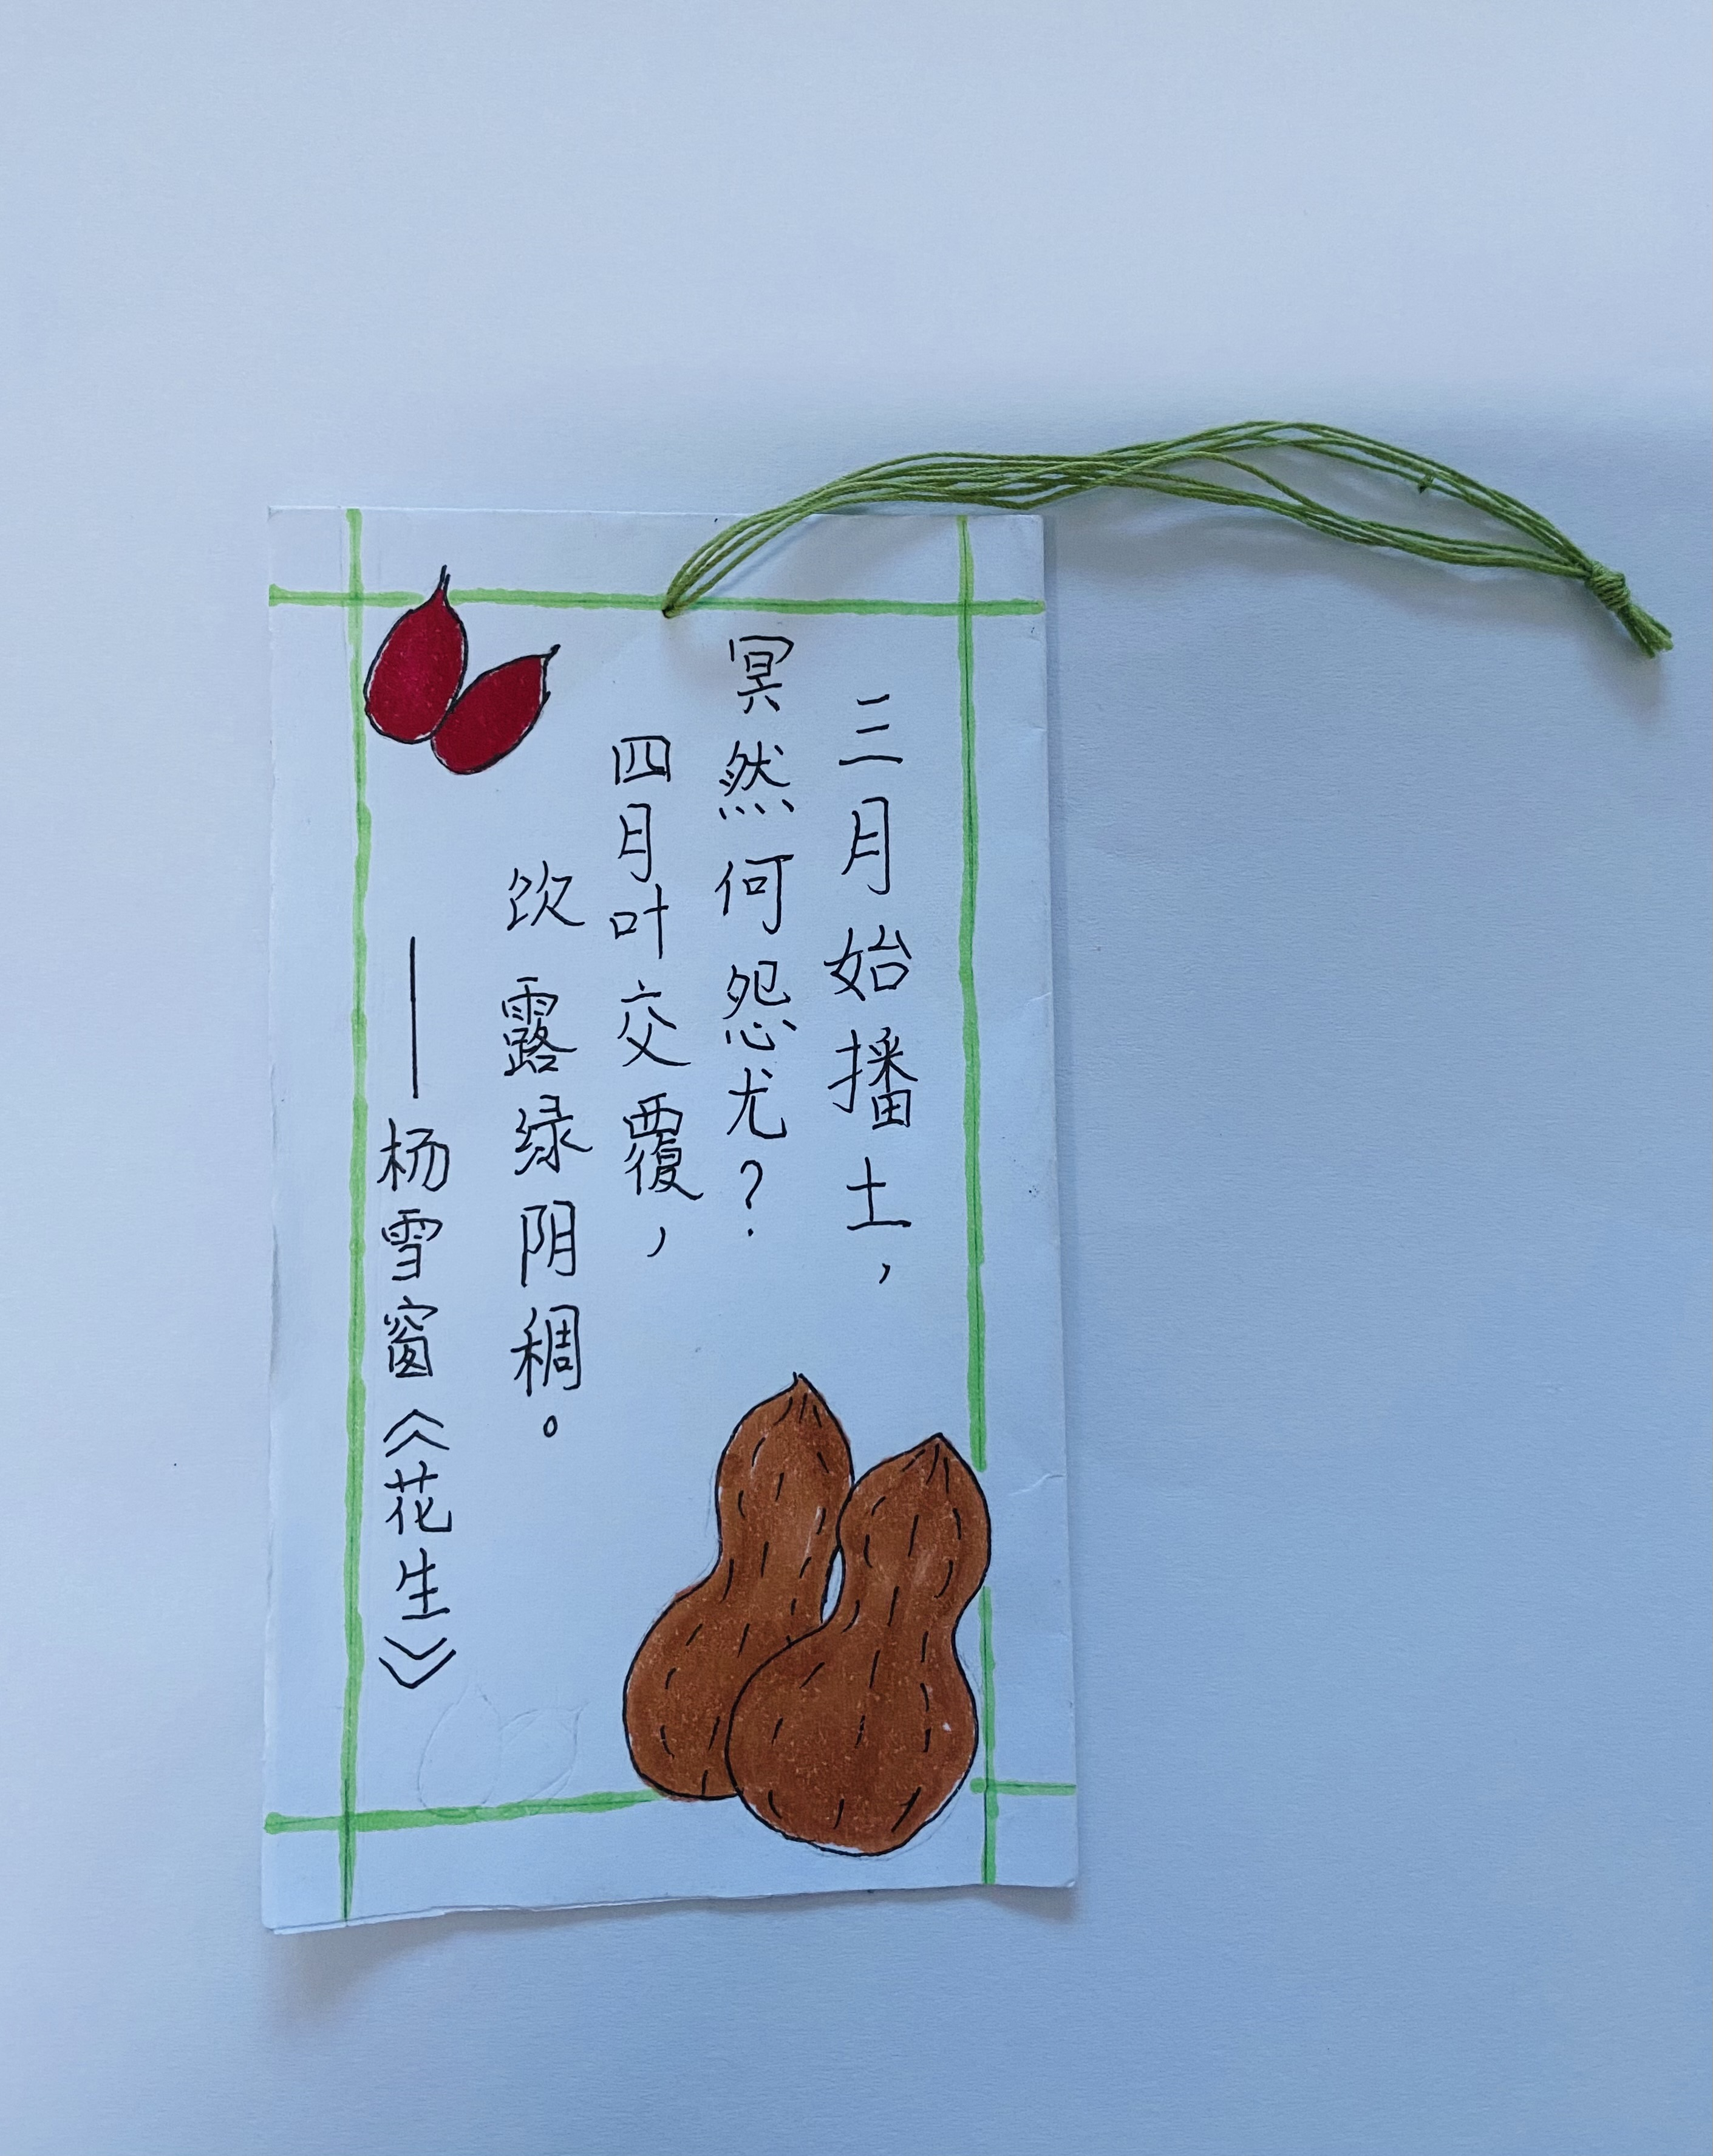 三月始播土，
冥然何怨尤？
四月叶交覆，
饮露绿阴稠。
——杨雪窗《花生》